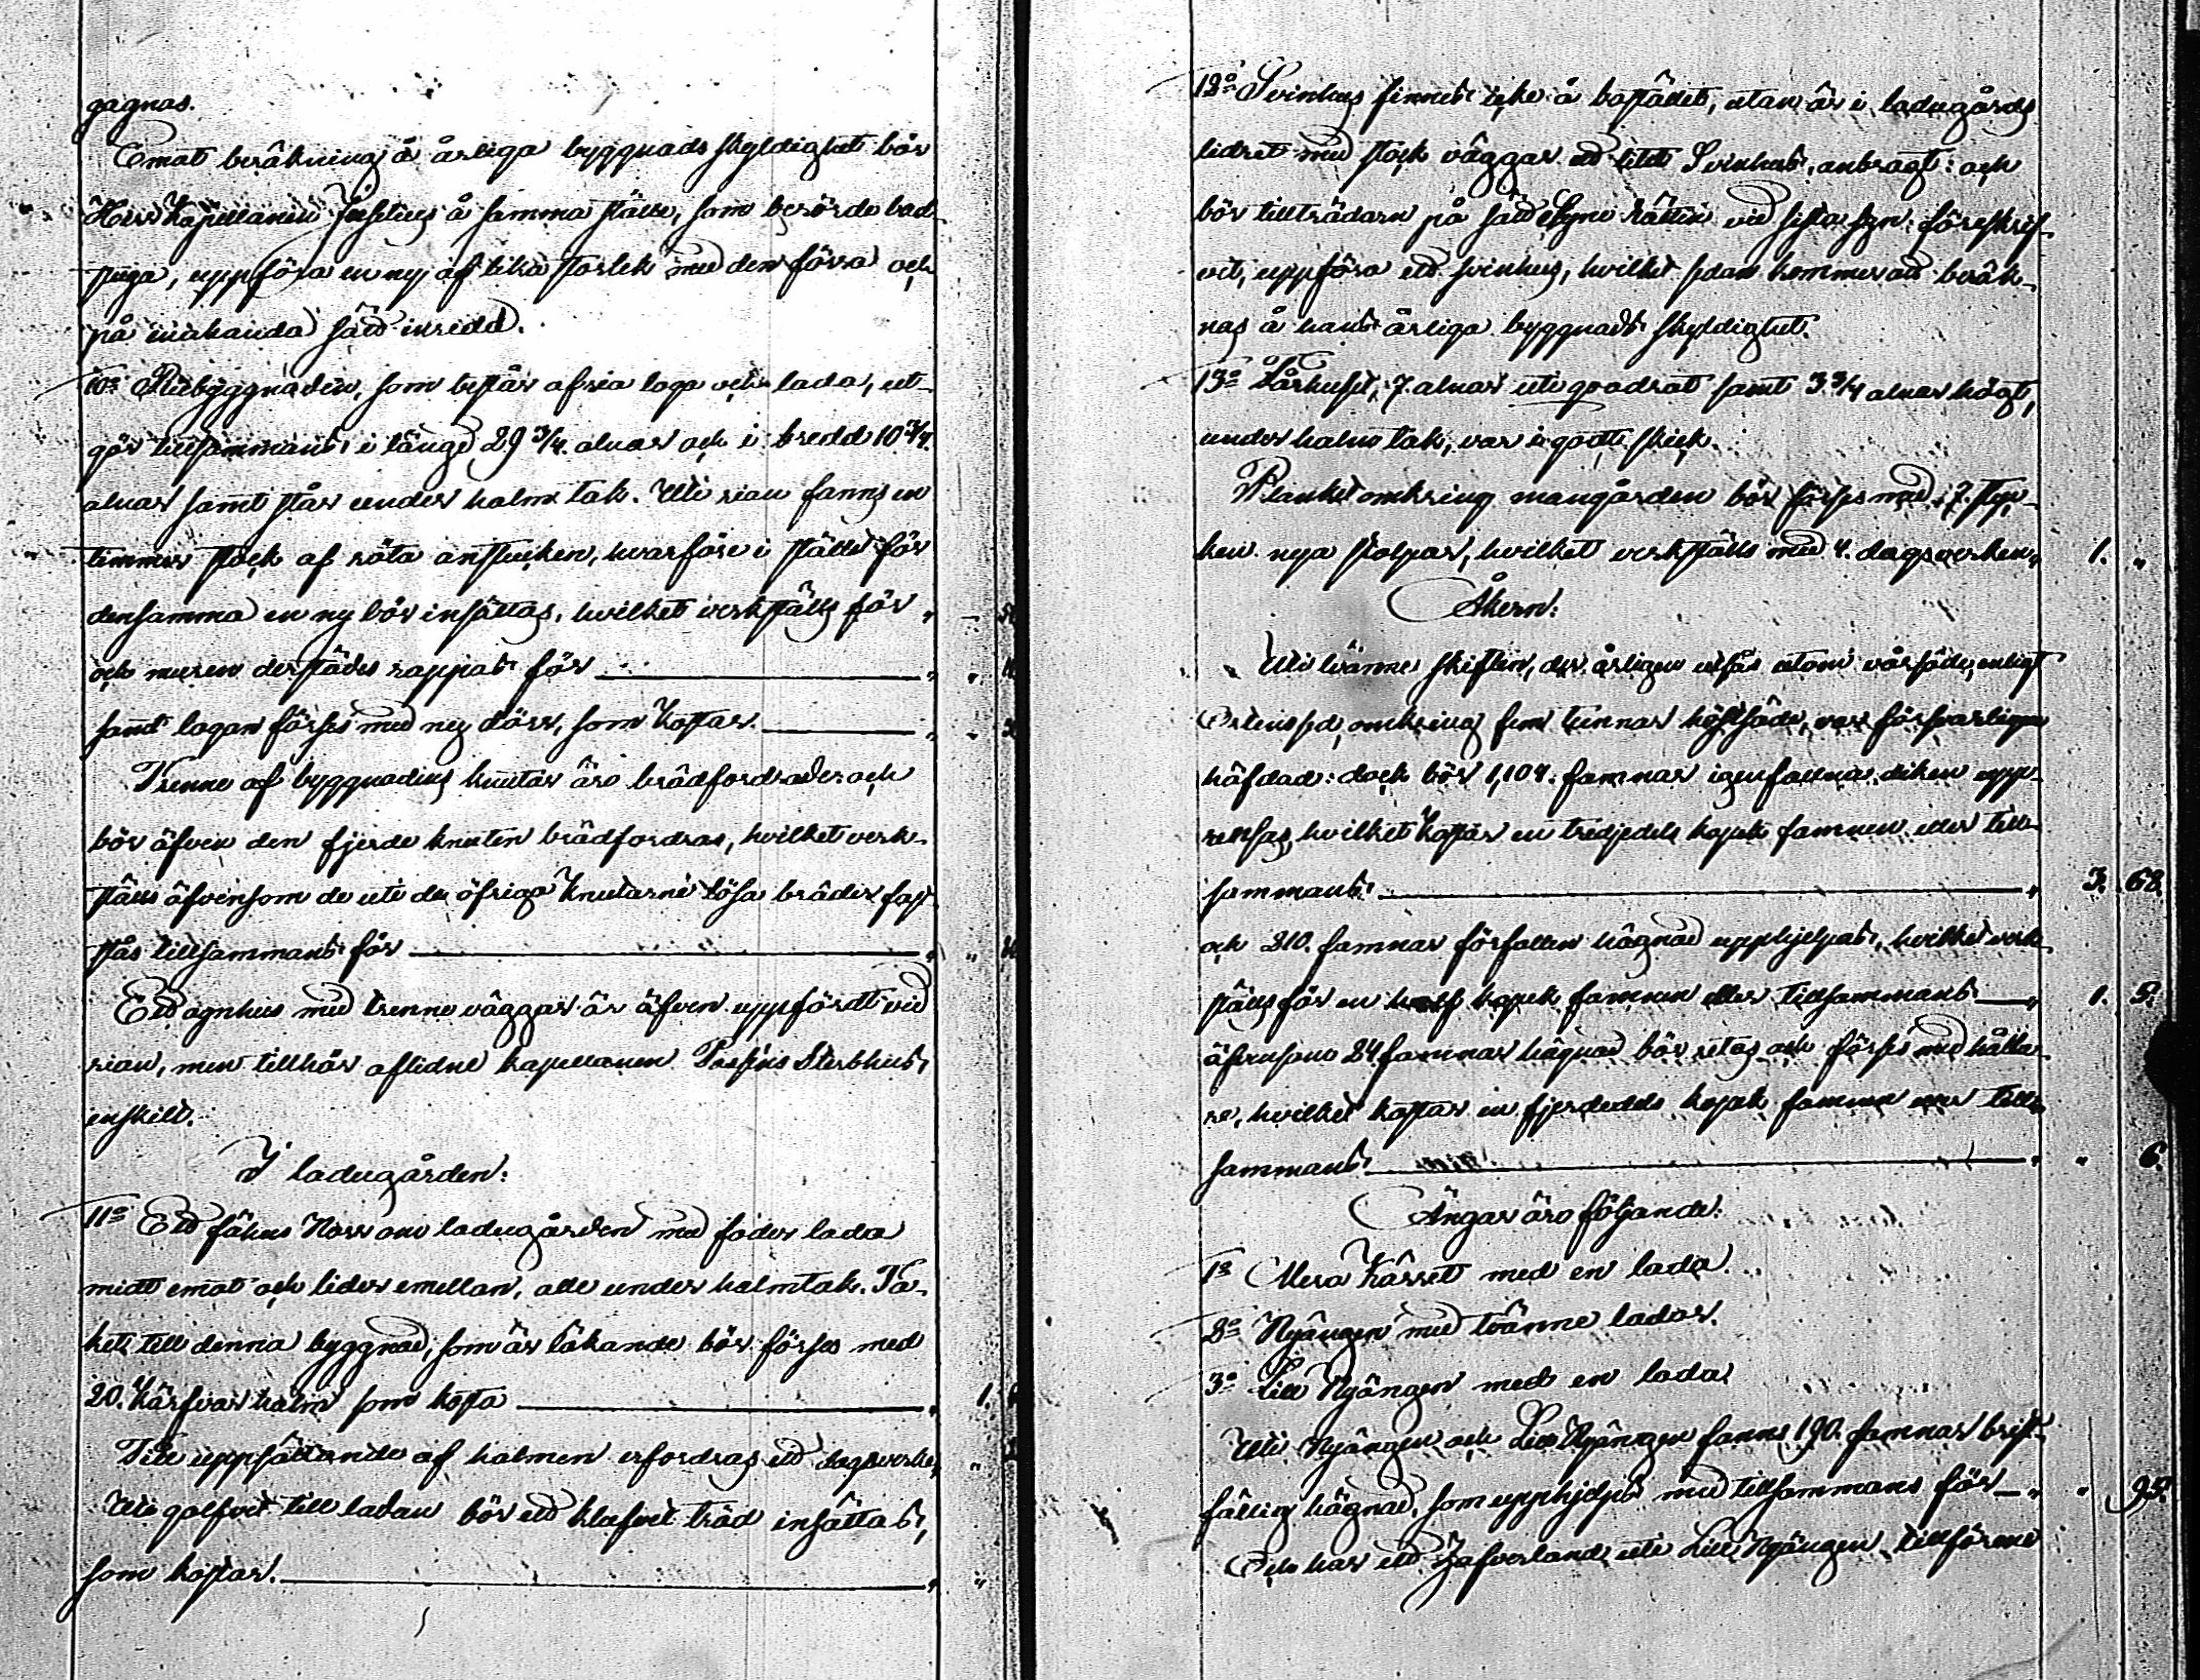 gagnas.
Emot beräkning å årliga byggnads skyldighet bör
Herr Kapellanen å samma ställe, som berörde bad
stuga, uppföra en ny af lika storlek med den förra och
på enahanda sätt inredd.
10o Riebyggnaden, som består af ria loga och lada, ut-
gör tillsammans i längd 29 3/4. alnar och i bredd 10 3/4.
alnar samt står under halm tak. Uti rian fanns en
timmer stock af röta anstucken, hvarföre i stället för
densamma en ny bör insättas, hvilket verkställs för „ –
och muren derstädes rappas för „ „
samt logan förses med ny dörr, som kostar. „ „
Trenne af byggnadens knutar äro brädfordrade och
bör äfven den fjerde knuten brädfordras, hvilket verk-
ställs äfvensom de uti de öfriga knutarne lösa bräder fast
slås tillsammans för „ „
Ett agnhus med trenne väggar är äfven uppfördt vid
rian, men tillhör aflidne kapellanen Sterbhus
enskilt.
I ladugården:
11o Ett fähus Norr om ladugården med foder lada
midt emot och lider emellan, alle under halmtak. Ta-
ket till denna byggnad, som är läkande bör förses med
20. kärfvar halm som kosta „ 1.
Till uppsättande af halmen erfordras ett dagsverke, „
Uti golfvet till ladan bör ett klufvet träd insättas,
som kostar. „ „
12o Svinhus finnes icke å bostället, utan är i ladugårds
lidret med stock väggar ett litet Svinhus anbragt: och
bör tillträdarn på sätt Syne Rätten vid sista syn föreskrif-
vit, uppföra ett svinhus, hvilket sedan kommer att beräk-
nas å hans årliga byggnads skyldighet.
13o Fårhuset, 7. alnar uti quadrat samt 3 3/4 alnar högt,
under halm tak, var i godt skick.
Planket omkring mangården bör förses med 7. styc-
ken nya stolpar, hvilket verkställs med 4. dagsverken „ 1. „
Åkern:
Uti tvänne skiften, der årligen utsås utom vårsäde, enligt
omkring fem tunnor höstsäde, var försvarligen
häfdad: dock bör 1,104. famnar igenfallna diken upp-
rensas, hvilket kostar en tredjedels kopek famnen eller till-
sammans „ 3. 68.
och 210. famnar förfallen hägnad upphjelpas, hvilket verk-
ställs för en half kopek famnen eller tillsammans „ 1. 5.
äfvensom 24 famnar hägnad bör rätas och förses med hålla-
re, hvilket kostar en fjerdedels kopek famnen eller till-
sammans „ „ 6.
Ängar äro följande:
1o Mera Kärret med en lada.
2o Nyängen med tvänne lador.
3o Lill Nyängen med en lada
Uti Nyängen och Lill Nyängen fanns 190. famnar brist-
fällig hägnad, som upphjelpes med tillsammans för „ „ 95.
Och har ett uti Lill Nyängen tillförene